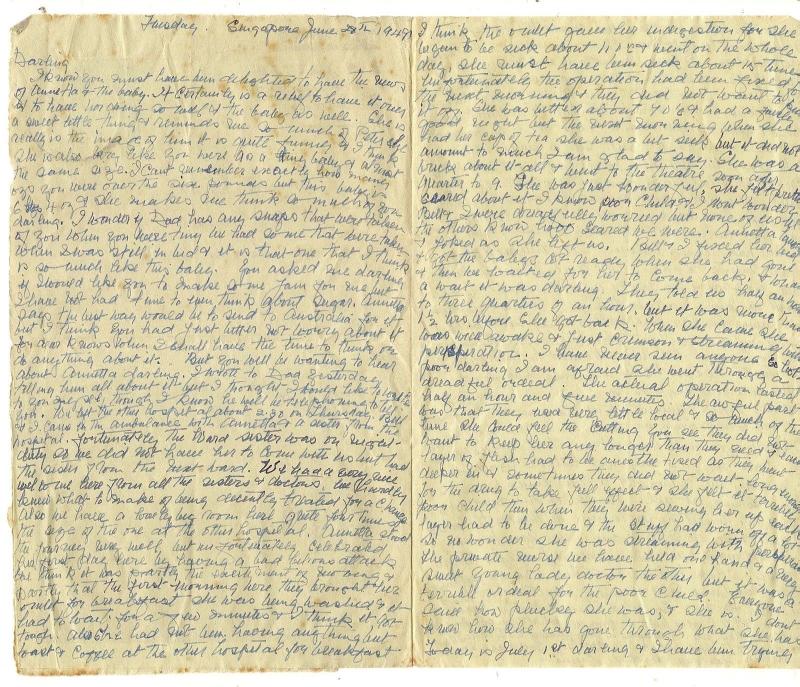 Tuesday. Singapore June 28th 1949
Darling
I know you must have been delighted to have the news
of Annetta & the baby. It certainly is a relief to have it over
& to have her doing so well & the baby as well. She is
a sweet little thing & reminds me so much of Peter she
really is the image of him it is quite funny, & I think
she is also very like you were as a tiny baby & almost
the same size. I can't remember exactly how many
ozs you were over the six pounds but this baby is
& she makes me think so much of you
darling. I wonder if Dad has any snaps that were taken
of you when you were tiny we had some that were taken
when I was still in bed & it is that one that I think
is so much like this baby. You asked me darling
if I would like you to make me some jam for me but
I have not had time to even think about sugar. Annetta
says the best way would be to send to Australia for it
but I think you had just better not worry about it
for dear knows when I shall have the time to think or
do anything about it. But you will be wanting to hear
about Annetta darling. I wrote to Dad yesterday
telling him all about it but I thought I would like to write
to you myself, though I know he will be telephoning to tell
you. We left the other hospital about 2.30 on Thursday. Bill
& I came in the ambulance with Annetta & a sister from that
hospital. Fortunately the ward sister was on night
duty so we did not have her to come with us but had
the sister from the next ward. We had a very nice
welcome here from all the sisters & doctors, we hardly
knew what to make of being decently treated for a change
Also we have a lovely big room here quite four times
the size of the one at the other hospital. Annetta stood
the journey very well, but unfortunately celebrated
her first day here by having a bad bilious attack
we think it was partly the excitement of moving &
partly that the first morning here they brought her
omlet for breakfast she was being washed & it
had to wait for a few minutes & I think it got
tough. Also she had not been having anything but
toast & coffee at the other hospital for breakfast
I think the omlet gave her indigestion for she
began to be sick about 11 o'c & went on the whole
day, she must have been sick about 15 times
Unfortunately the operation had been fixed for
the next morning & they did not want to put
it off. She was better about 7 o'c & had a fairly
good night but the next morning when she
had her cup of tea she was a bit sick but it did not
amount to much I am glad to say. She was a
brick about it all & went to the theatre soon after
quarter to 9. She was just wonderful, she felt pretty
scared about it I know poor child & I wont wonder
Bill & I were dreadfully worried but none of us let
the others know how scared we were. Annetta
& joked as she left us. Bill & I fixed her bed
& got the babys cot ready when she had gone
& then we waited for her to come back. & what
a wait it was darling. They told us half an hour
to three quarters of an hour, but it was more than
1½ hrs before she got back. When she came she
was wide awake & just crimson & streaming with
perspiration. I have never seen anyone so hot
poor darling I am afraid she went through a
dreadful ordeal. The actual operation lasted
half an hour and five minutes. The awful part
was that they used very little local & so much of the
time she could feel the cutting you see they did not
want to keep her any longer than they need & each
layer of flesh had to be anaesthetised as they went
deeper in & sometimes they did not wait long enough
for the drug to take full effect & she felt it terribly
poor child then when they were sewing her up each
layer had to be done & the stuff had worn off a lot
So no wonder she was streaming with perspiration
The private nurse we have held one hand & a very
sweet young lady doctor the other but it was a
terrible ordeal for the poor child. Everyone
said how pluckey she was, & she is. I dont
know how she has gone through what she has
Today is July 1st darling & I have been trying